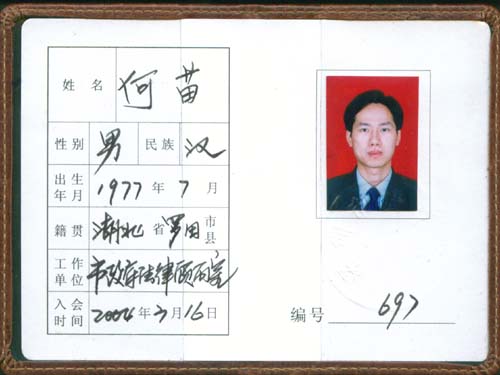 姓名 何苗
性别 男 民族 汉
出生年月 1977年7月
籍贯 湖北省罗田市县
工作单位 市政府法律顾问室
入会时间 2004年3月16日
编号 697